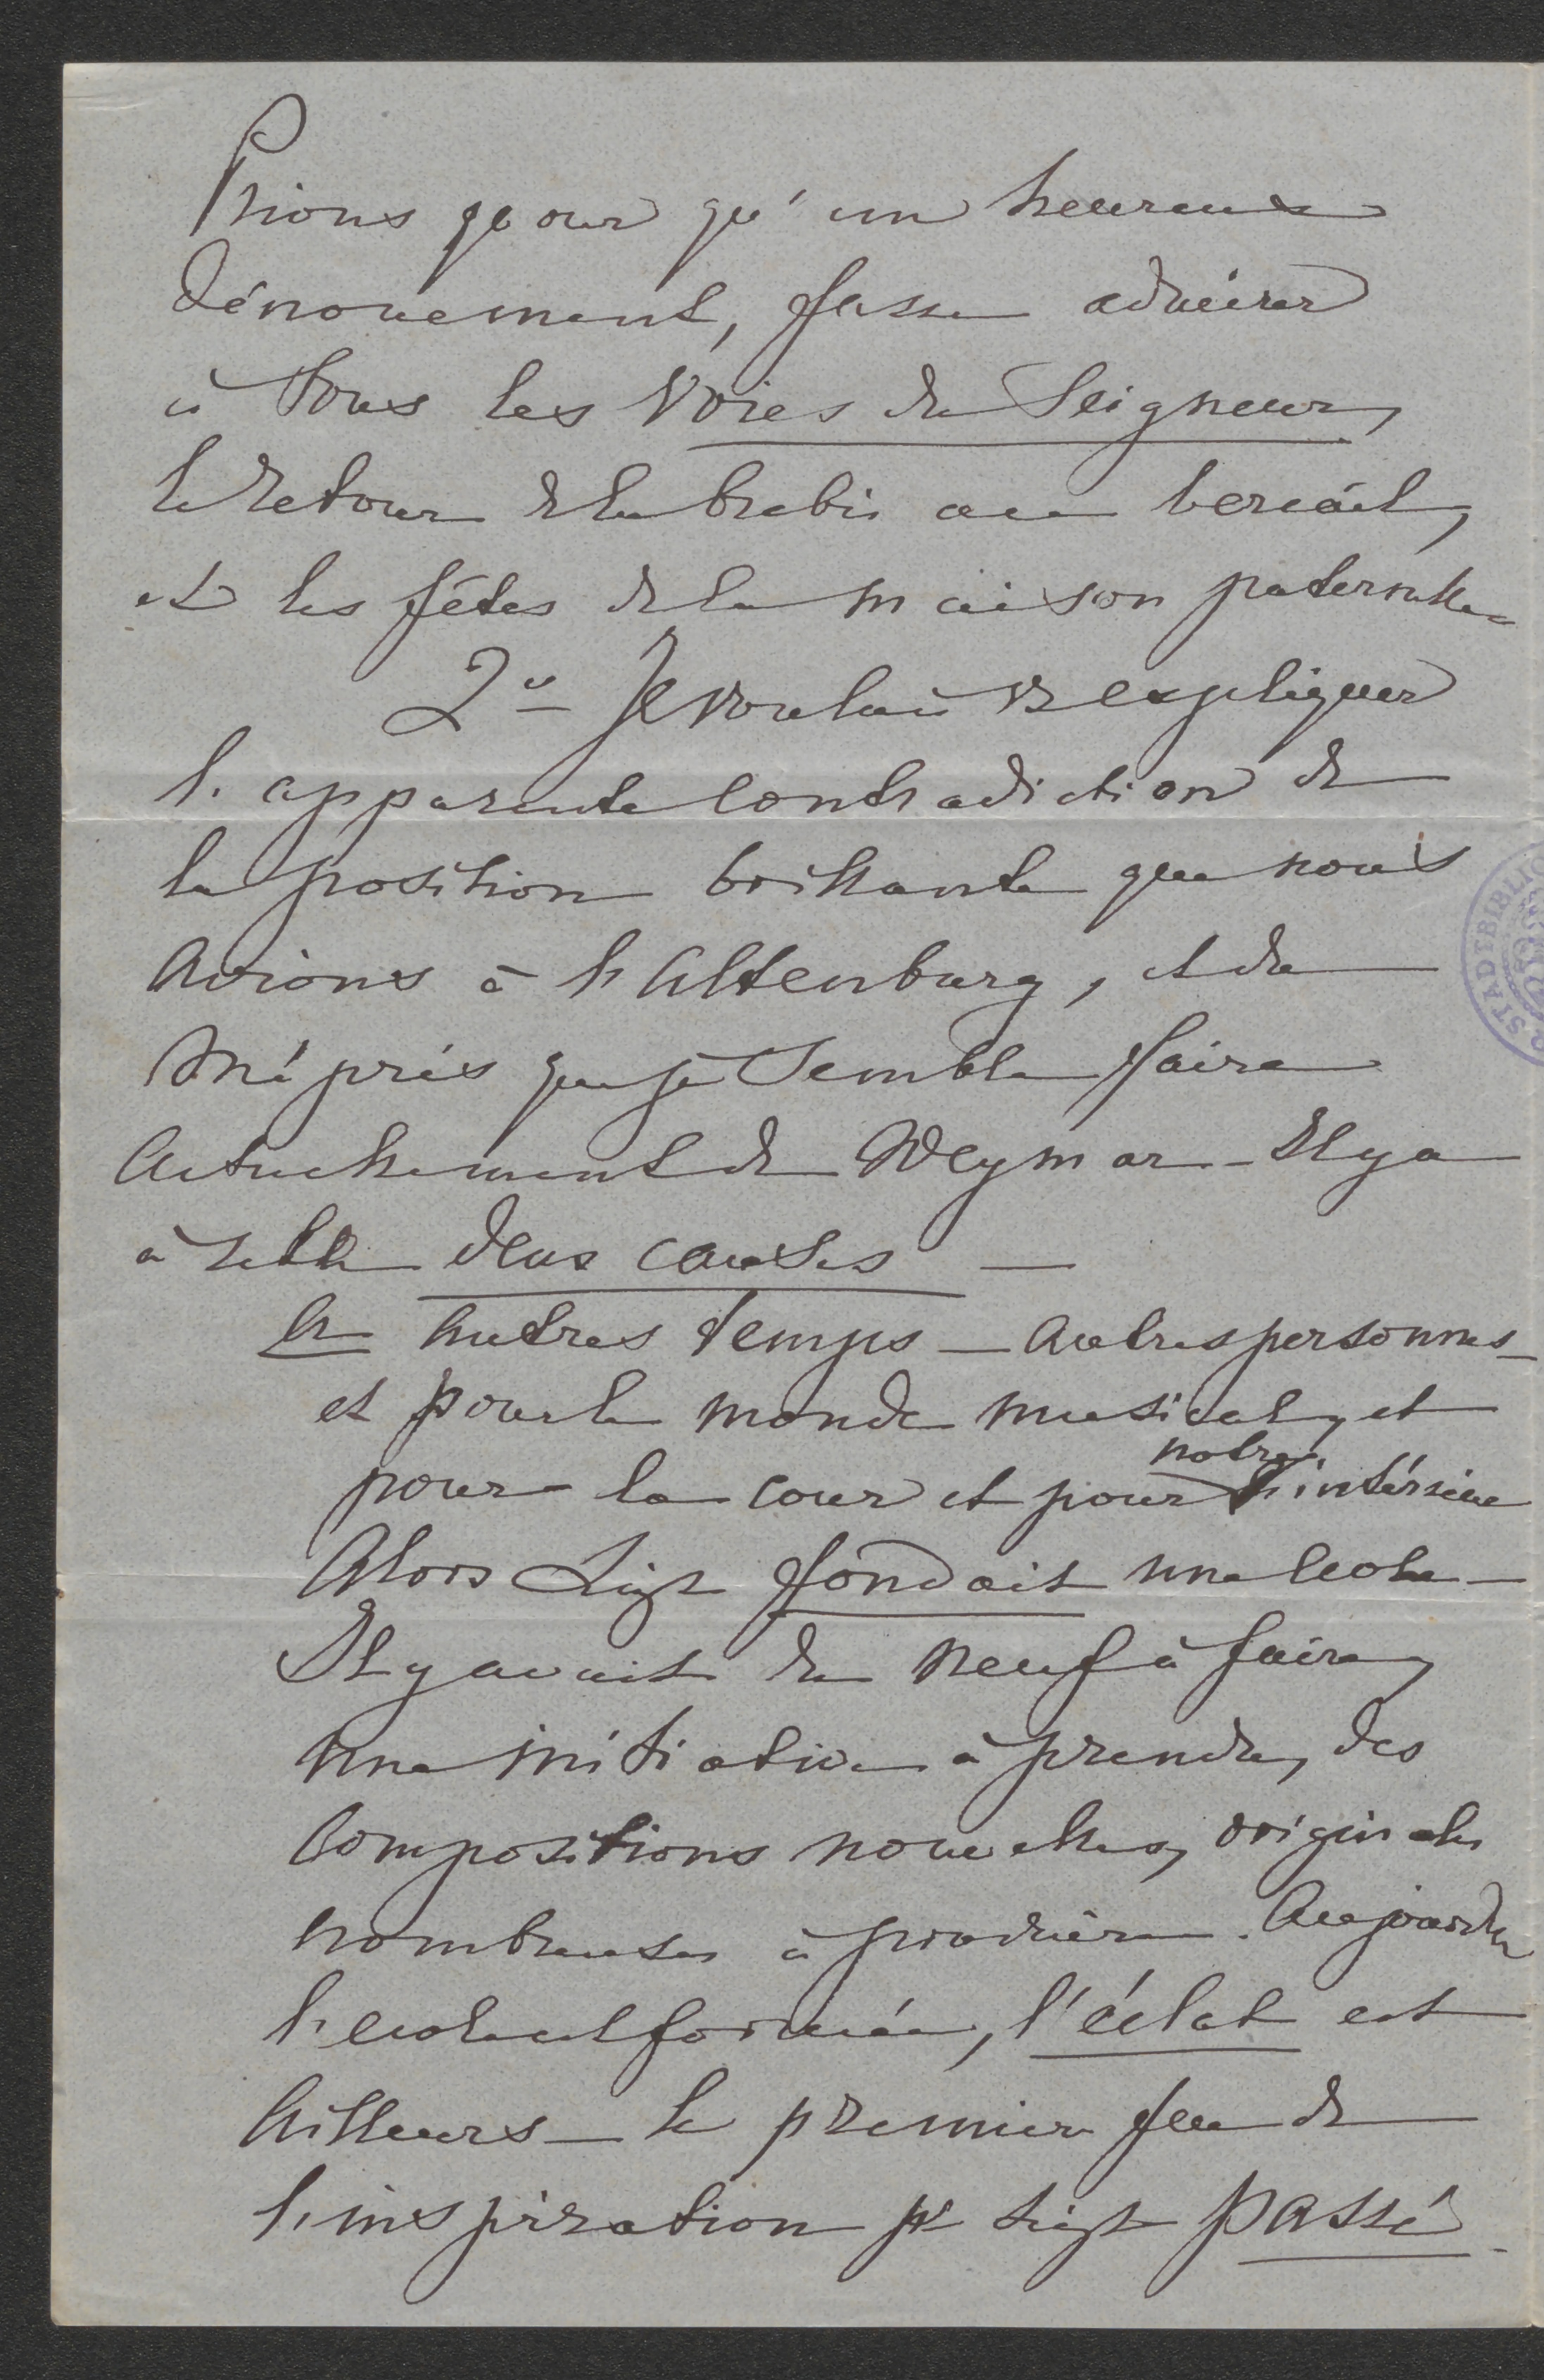 Prions pour qu'un heureux
dénouement, fasse admirer
à tous les voies du Seigneur,
le retour de la brebis au bercail,
et les fêtes de la maison paternelle
2º Je voulais vs expliquer
l'apparente contradiction de
la position brillante que nous
avions à l'Altenburg, et du
mépris que je semble faire
actuellement de Weymar - Il y a
à cela deux causes —
A Autres temps — autres personnes —
et pour le monde musical, et
pour la cour et pour notre intérieur
Alors Liszt fondait une école —
Il y avait du neuf à faire,
une initiative à prendre, des
compositions nouvelles, originales
nombreuses à produire. Aujourd'hui
l'école est formée, l'éclat est
ailleurs — le premier feu de
l'inspiration pr Liszt passé -
STADTBIBLIO